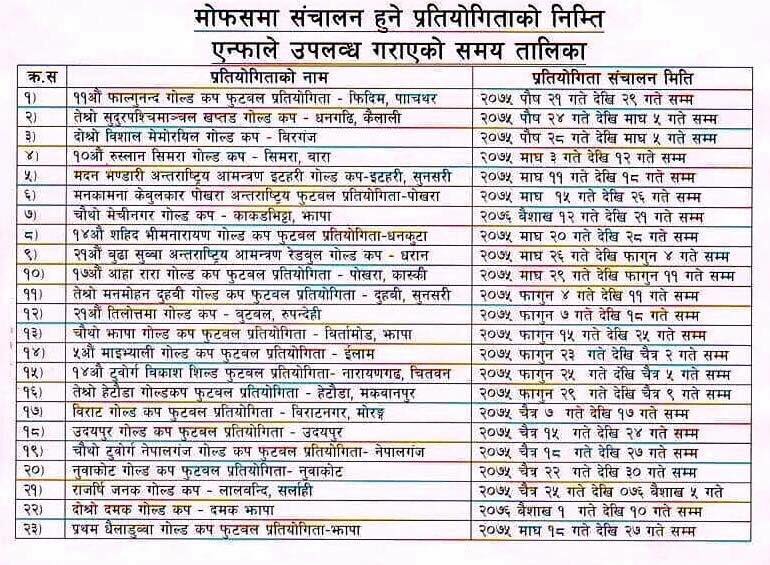 मोफसमा संचालन हुने प्रतियोगिताको निम्ति
एन्फाले उपलव्ध गराएको समय तालिका
क्र.स प्रतियोगिताको नाम प्रतियोगिता संचालन मिति
१) ११औं फाल्गुनन्द गोल्ड कप फुटवल प्रतियोगिता - फिदिम, पााचथर २०७५ पौष २१ गते देखि २९ गते सम्म
२) तेश्रो सुदुरपश्चिमाञ्चल खप्तड गोल्ड कप - धनगढि, कैलाली २०७५ पौष २४ गते देखि माघ ५ गते सम्म
३) दोश्रो विशाल मेमोरयिल गोल्ड कप - बिरगंज २०७५ पौष २८ गते देखि माघ ५ गते सम्म
४) १०औं रुस्लान सिमरा गोल्ड कप - सिमरा, वारा २०७५ माघ ३ गते देखि १२ गते सम्म
५) मदन भण्डारी अन्तराष्ट्रिय आमन्त्रण इटहरी गोल्ड कप-इटहरी, सुनसरी २०७५ माघ ११ गते देखि १८ गते सम्म
६) मनकामना केबुलकार पोखरा अन्तराष्ट्रिय फुटवल प्रतियोगिता-पोखरा २०७५ माघ १५ गते देखि २६ गते सम्म
७) चौथो मेचीनगर गोल्ड कप - काकडभिट्टा, झापा २०७६ बैशाख १२ गते देखि २१ गते सम्म
८) १४औं शहिद भीमनारायण गोल्ड कप फुटवल प्रतियोगिता-धनकुटा २०७५ माघ २० गते देखि २८ गते सम्म
९) २१औं बुढा सुब्बा अन्तराष्ट्रिय आमन्त्रण रेडवुल गोल्ड कप - धरान २०७५ माघ २६ गते देखि फागुन ४ गते सम्म
१०) १७औं आहा रारा गोल्ड कप फुटवल प्रतियोगिता - पोखरा, कास्की २०७५ माघ २९ गते देखि फागुन ११ गते सम्म
११) तेश्रो मनमोहन दुहवी गोल्ड कप फुटवल प्रतियोगिता - दुहवी, सुनसरी २०७५ फागुन ४ गते देखि ११ गते सम्म
१२) २१औं तिलोत्तमा गोल्ड कप - बुटवल, रुपन्देही २०७५ फागुन ७ गते देखि १८ गते सम्म
१३) चौथो झापा गोल्ड कप फुटवल प्रतियोगिता - विर्तामोड, झापा २०७५ फागुन १५ गते देखि २५ गते सम्म
१४) ५औं माइभ्याली गोल्ड कप फुटवल प्रतियोगिता - ईलाम २०७५ फागुन २३ गते देखि चैत्र २ गते सम्म
१५) १४औं टुवोर्ग विकाश शिल्ड फुटवल प्रतियोगिता- नारायणगढ, चितवन २०७५ फागुन २५ गते देखि चैत्र ५ गते सम्म
१६) तेश्रो हेटौडा गोल्डकप फुटवल प्रतियोगिता - हेटौडा, मकवानपुर २०७५ फागुन २९ गते देखि चैत्र ९ गते सम्म
१७) विराट गोल्ड कप फुटवल प्रतियोगिता - विराटनगर, मोरङ्ग २०७५ चैत्र ७ गते देखि १७ गते सम्म
१८) उदयपुर गोल्ड कप फुटवल प्रतियोगिता - उदयपुर २०७५ चैत्र १५ गते देखि २४ गते सम्म
१९) चौथो टुवोर्ग नेपालगंज गोल्ड कप फुटवल प्रतियोगिता- नेपालगंज २०७५ चैत्र १८ गते देखि २७ गते सम्म
२०) नुवाकोट गोल्ड कप फुटवल प्रतियोगिता- नुवाकोट २०७५ चैत्र २२ गते देखि ३० गते सम्म
२१) राजर्षि जनक गोल्ड कप - लालवन्दि, सर्लाही २०७५ चैत्र २५ गते देखि ०७६ बैशाख ५ गते
२२) दोश्रो दमक गोल्ड कप - दमक झापा २०७६ बैशाख १ गते देखि १० गते सम्म
२३) प्रथम धैलाडुव्वा गोल्ड कप फुटवल प्रतियोगिता-झापा २०७५ माघ १८ गते देखि २७ गते सम्म